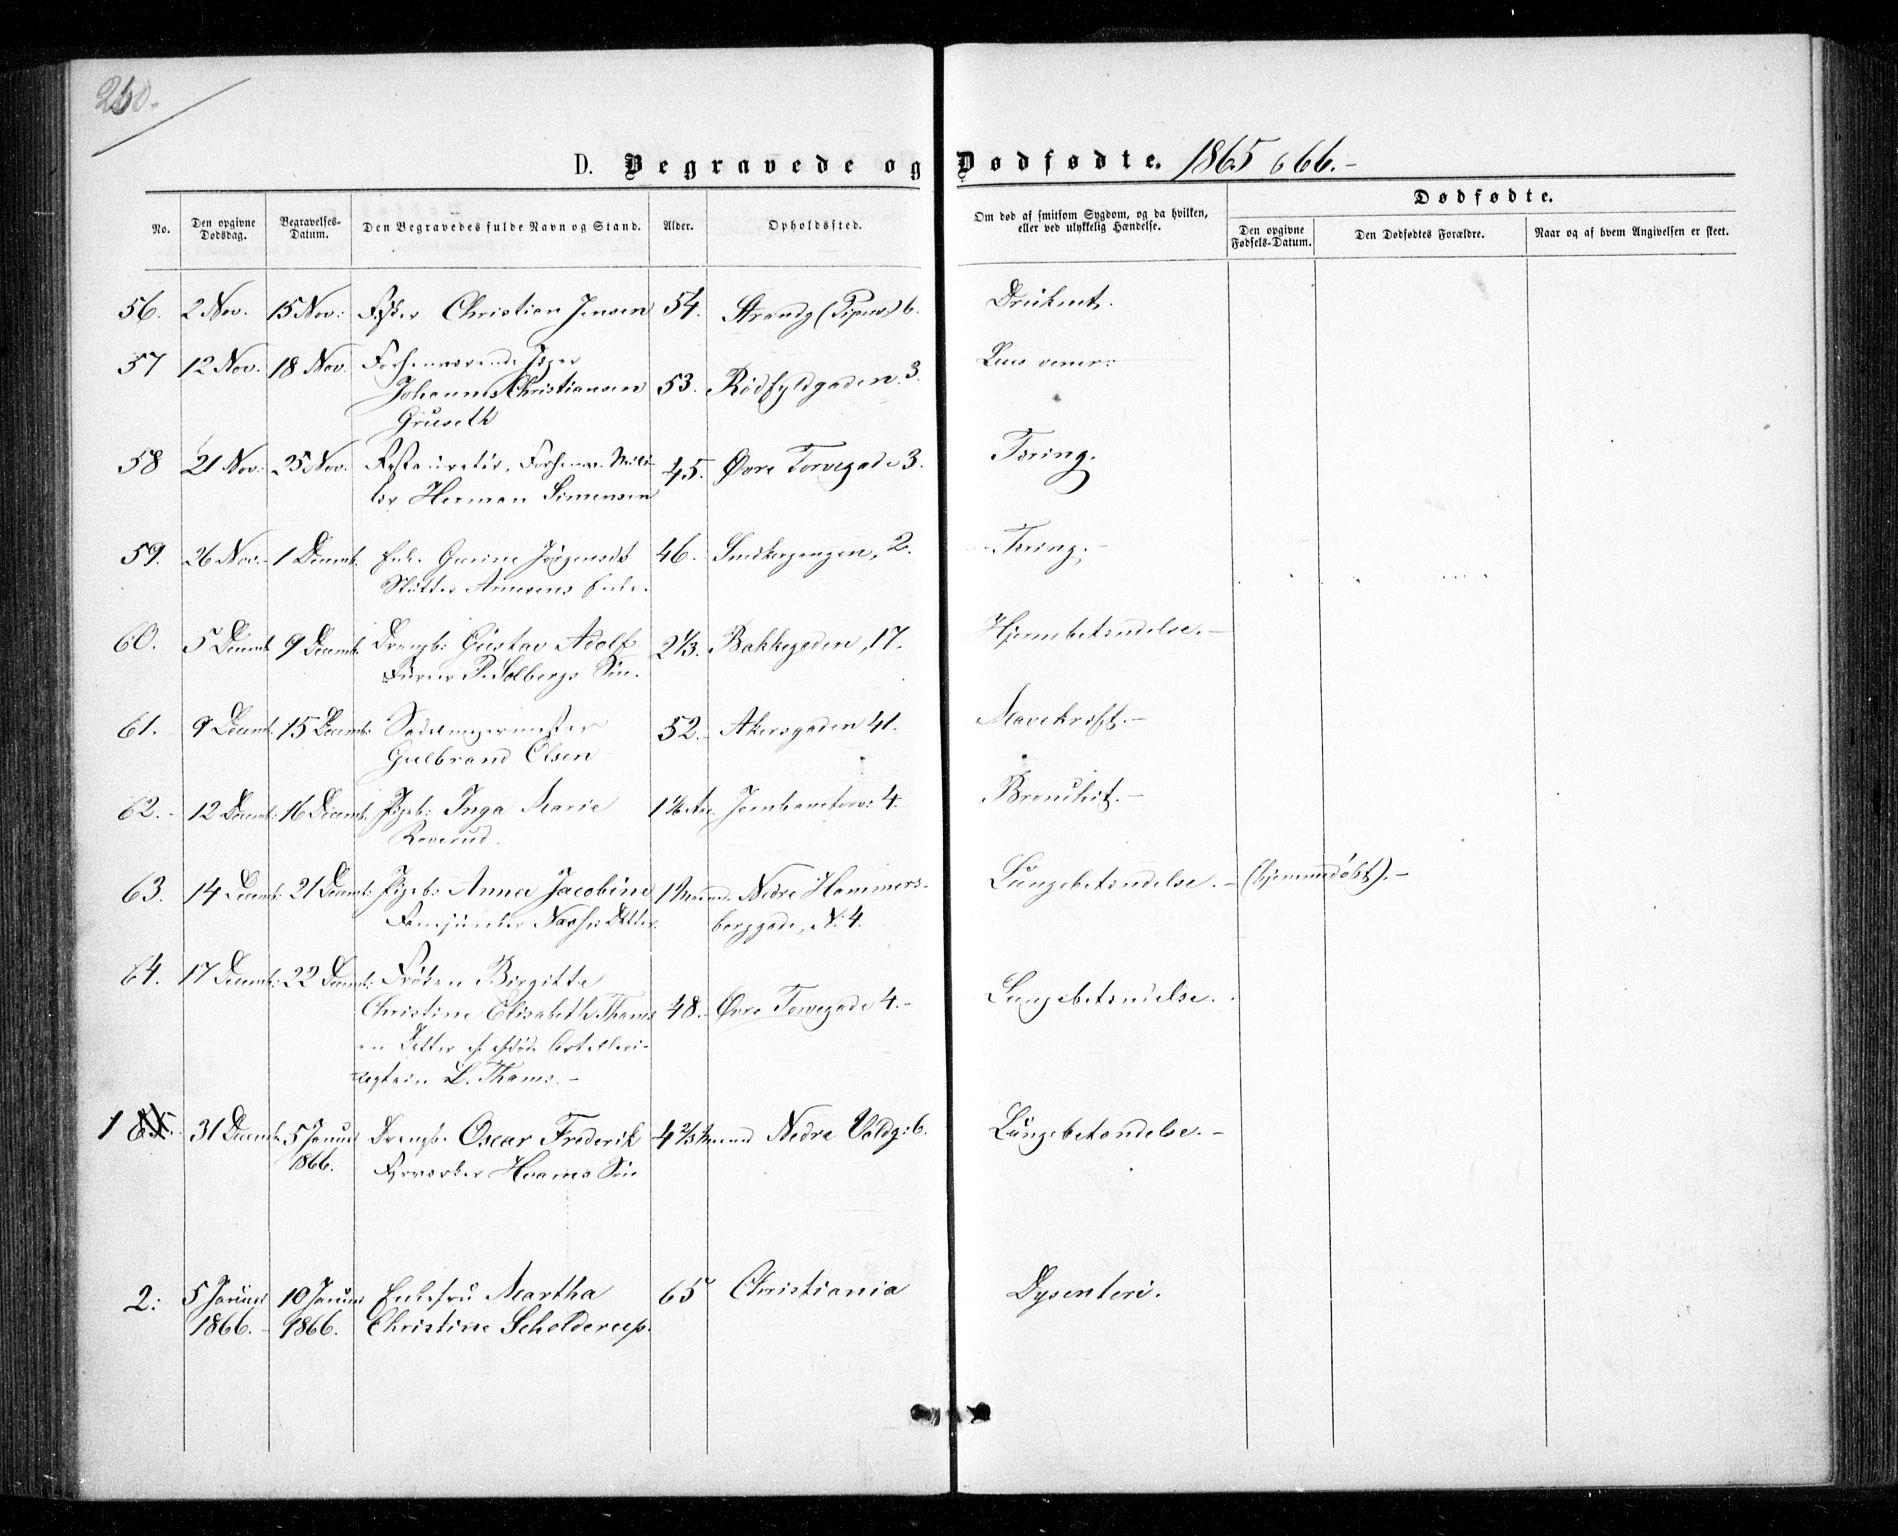 260.
D. Begravede og Dødfødte. 1865 o 66.-
No.
Den opgivne Dødsdag.
Begravelses-Datum.
Den Begravedes fulde Navn og Stand.
Alder.
Opholdssted.
Om død af smitsom Sygdom, og da hvilken, eller ved ulykkelig Hændelse.
Dødfødte.
Den opgivne Fødsels-Datum.
Den Dødfødtes Forældre.
Naar og af hvem Angivelsen er skeet.
56. 2 Nov. 15 Nov: Christian Jensen 54. Strandg (Piperv) 6.
57 12 Nov. 18 Nov. Forhenværende Jæger 53. Rødfyldgaden 3. Lues vener:
Johannes Christiansen
Gruseth
58 21 Nov: 25 Nov. Restauratør, Forhenv. Mili- 45. Øvre Torvegade 3. Tæring.
tær Herman Simensen
59. 26 Nov. 1 Decemb. Enke Gurine Jørgensdt 46. Smedkergangen, 2. Tæring.-
Arnesens Enke.
60. 5 Decemb 9 Decemb. Drengb: Gustav Adolf 2 1/3. Bakkegaden, 17. Hjernebetændelse.-
Furer P. Solbergs Søn.
61. 9 Decemb. 15 Decemb: Sadelmagermester 52. Akersgaden 41. Mavekræft.-
Gulbrand Olsen
62. 12 Decemb: 16 Decemb. Pigeb: Inga Marie Jernbanetorv: 4. Bronchit.-
Roverud.
63. 14 Decemb: 21 Decemb: Pigeb: Anna Jacobine Nedre Hammers- Lungebetændelse.- (hjemmedøbt).-
Fanejunker Næss: Datter. berggade, N. 4.
64. 17 Decemb: 22 Decemb: Frøken Birgitte
Christine Elisabeth Thams 48. Øvre Torvegade 4.- Lungebetændelse.
en Datter af afdøde Artilleri-
captain L. Thams.-
1 65. 31 Decemb. 5 Januar Drengb. Oscar Frederik 4 2/3 Maaned Nedre Voldg: 6. Lungebetændelse.-
1866. Fyrværker Hvams Søn
2: 5 Januar 10 Januar Enkefru Martha 65 Christiania Dysenteri.
1866.- 1866. Christine Scholderup.